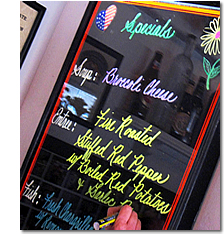 Specials
Soup: Broccoli Cheese
Entree: Fire Roasted
Stuffed Red Pepper
w/ Boiled Red Potatoes
& Garlic
Fish: Fresh
w/